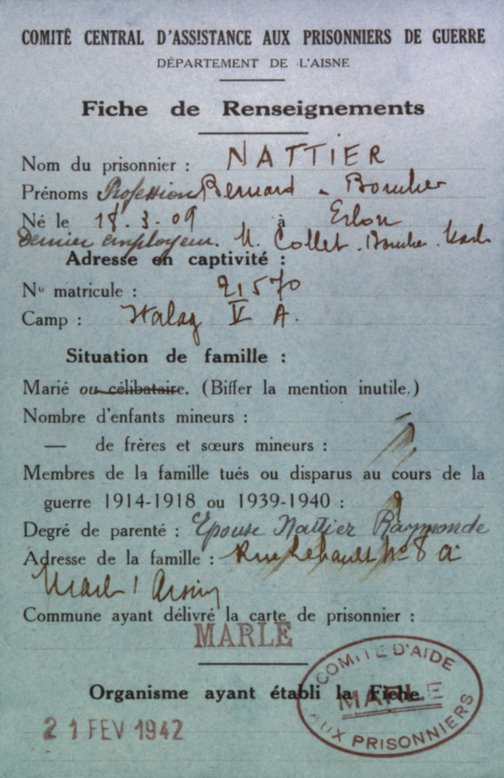 COMITÉ CENTRAL D'ASSISTANCE AUX PRISONNIERS DE GUERRE
DÉPARTEMENT DE L'AISNE
Fiche de Renseignements
Nom du prisonnier : NATTIER
Prénoms Profession Bernard - Boucher
Né le 18.3.09 à Erlon
Dernier employeur. M. Collet. Boucher. Marle
Adresse en captivité :
No matricule : 21570
Camp : Stalag V A.
Situation de famille :
Marié ou célibataire. (Biffer la mention inutile.)
Nombre d'enfants mineurs :
— de frères et sœurs mineurs :
Membres de la famille tués ou disparus au cours de la
guerre 1914-1918 ou 1939-1940 :
Degré de parenté : Epouse Nattier Raymonde
Adresse de la famille : Rue No 8 a
Marle
Commune ayant délivré la carte de prisonnier :
MARLE
Organisme ayant établi la Fiche
21 FEV 1942
COMITÉ D'AIDE
MARLE
AUX PRISONNIERS